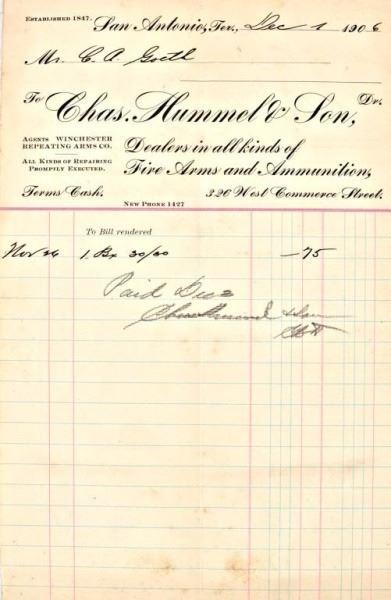 Established 1847.
San Antonio, Tex., Dec 1 1906
Mr. C. A. Goeth
To Chas. Hummel & Son, Dr.
Agents Winchester
Repeating Arms Co.
All Kinds of Repairing
Promptly Executed.
Dealers in all kinds of
Fire Arms and Ammunition,
Terms Cash.
320 West Commerce Street.
New Phone 1427
To Bill rendered
Nov 26 1 Bx 30/30 —75
Paid Dec 2
Chas Hummel & Son